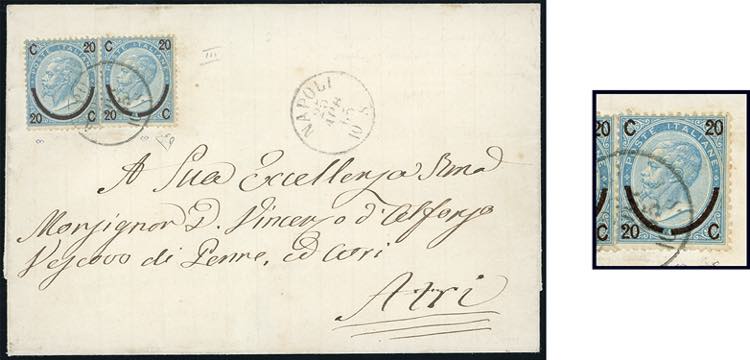 C 20 C 20
POSTE ITALIANE
20 C 20 C
III
NAPOLI
25
10 S
A Sua Eccellenza Rma
Monsignor D. Vincenzo d'Alfonzo
Vescovo di Penne, ed Atri
Atri
C 20
POSTE ITALIANE
20 C